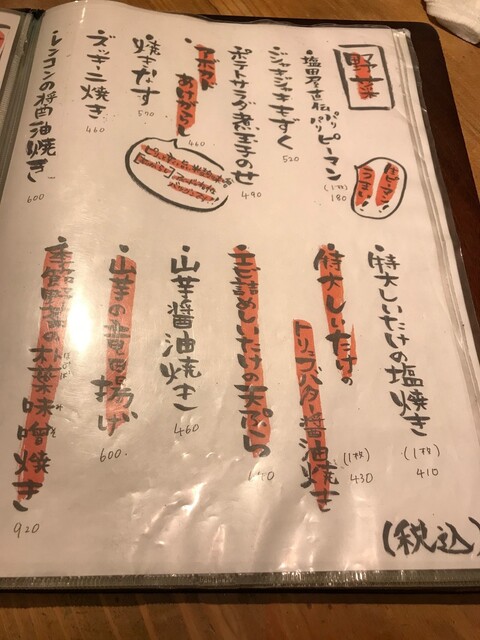 野菜
生ピーマン!
うまい!
・塩田屋直伝パリパリピーマン
(1ヶ) 180
・ジャキジャキもずく
520
・ポテトサラダ煮玉子のせ
490
・アボカドあげがらし
460
・焼きなす
570
・ズッキーニ焼き
460
・レンコンの醤油焼き
600
・特大しいたけの塩焼き
410
・特大しいたけのトリュフバター醤油焼き
430
・エビ詰めしいたけの天ぷら
・山芋醤油焼き
460
・山芋の竜田揚げ
600.
・季節野菜の朴葉味噌焼き
920
(税込)